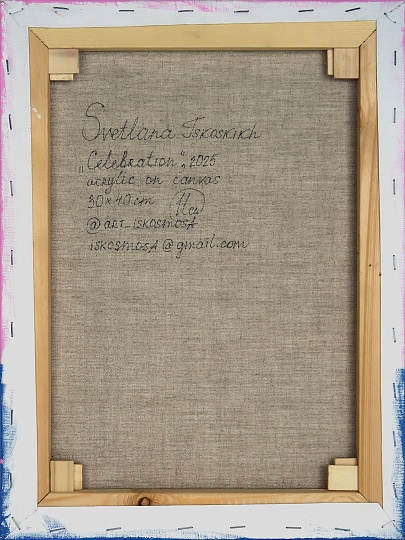 Svetlana Iskoskikh
„Celebration", 2025
acrylic on canvas
30 x 40 cm
@art_iskosmosA
iskosmosA@gmail.com